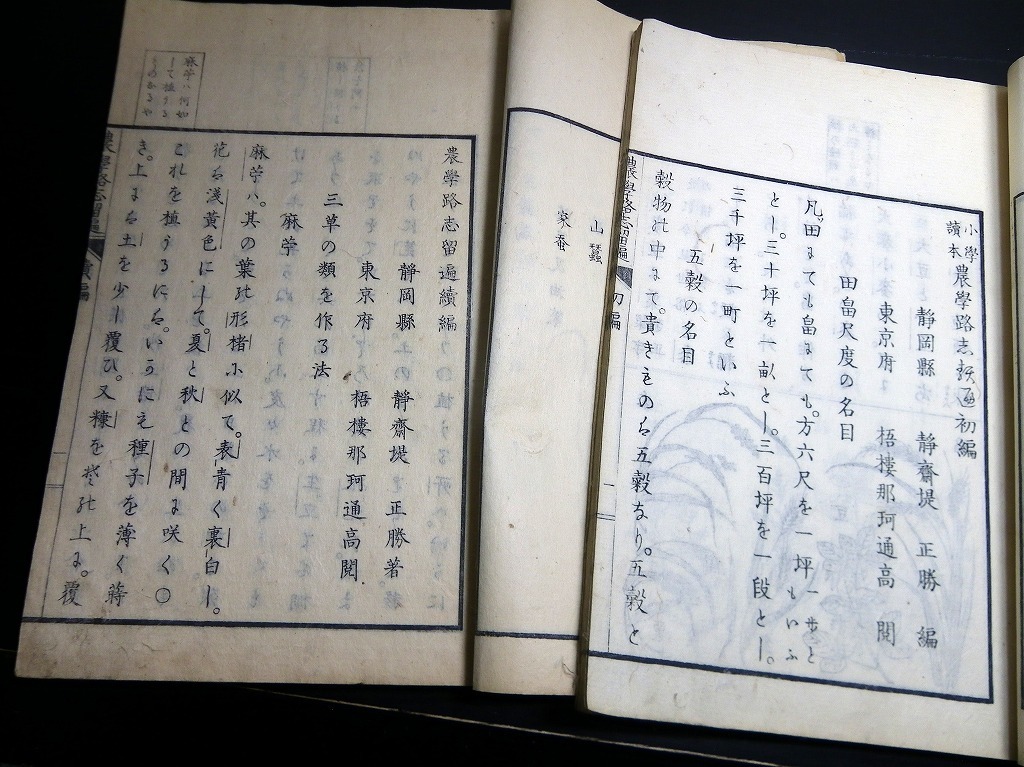 小學
讀本
農學路志留遍初編
静岡縣
静齋堤正勝編
東京府
梧樓那珂通高閲
田畠尺度の名目
凡田にても畠にても。方六尺を一坪一歩と
もいふ
とし。三十坪を一畝とし。三百坪を一段とし。
三千坪を一町といふ
五穀の名目
穀物の中にて。貴きものを五穀なり。五穀と
農學路志留遍
初編
一
山蠶
家蚕
農學路志留遍續編
静岡縣士
静齋堤正勝著
東京府
梧樓那珂通高閲
三草の類を作る法
麻苧
麻苧ハ。其の葉の形楮に似て。表青く裏白し。
花は淺黄色にして。夏と秋との間に咲く○
これを植うるには。いうにえ種子を薄く蒔
き。上には土を少し覆ひ。又糠を其の上に。覆
麻苧ハ何如
して植うる
ものなるや
農學路志留遍
續編
一